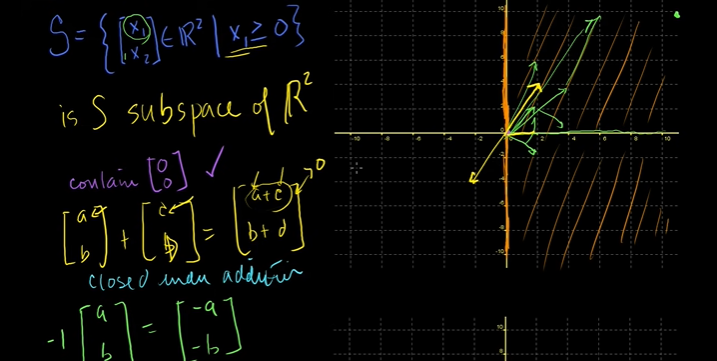 S = { [x₁ x₂] ∈ ℝ² | x₁ ≥ 0 }
is S subspace of ℝ²
contain [0 0] ✓
[a b] + [c d] = [a+c b+d] → 0
closed under addition
-1 [a b] = [-a -b]
10
8
6
4
2
-10 -8 -6 -4 -2 2 4 6 8 10
-2
-4
-6
-8
-10
10
8